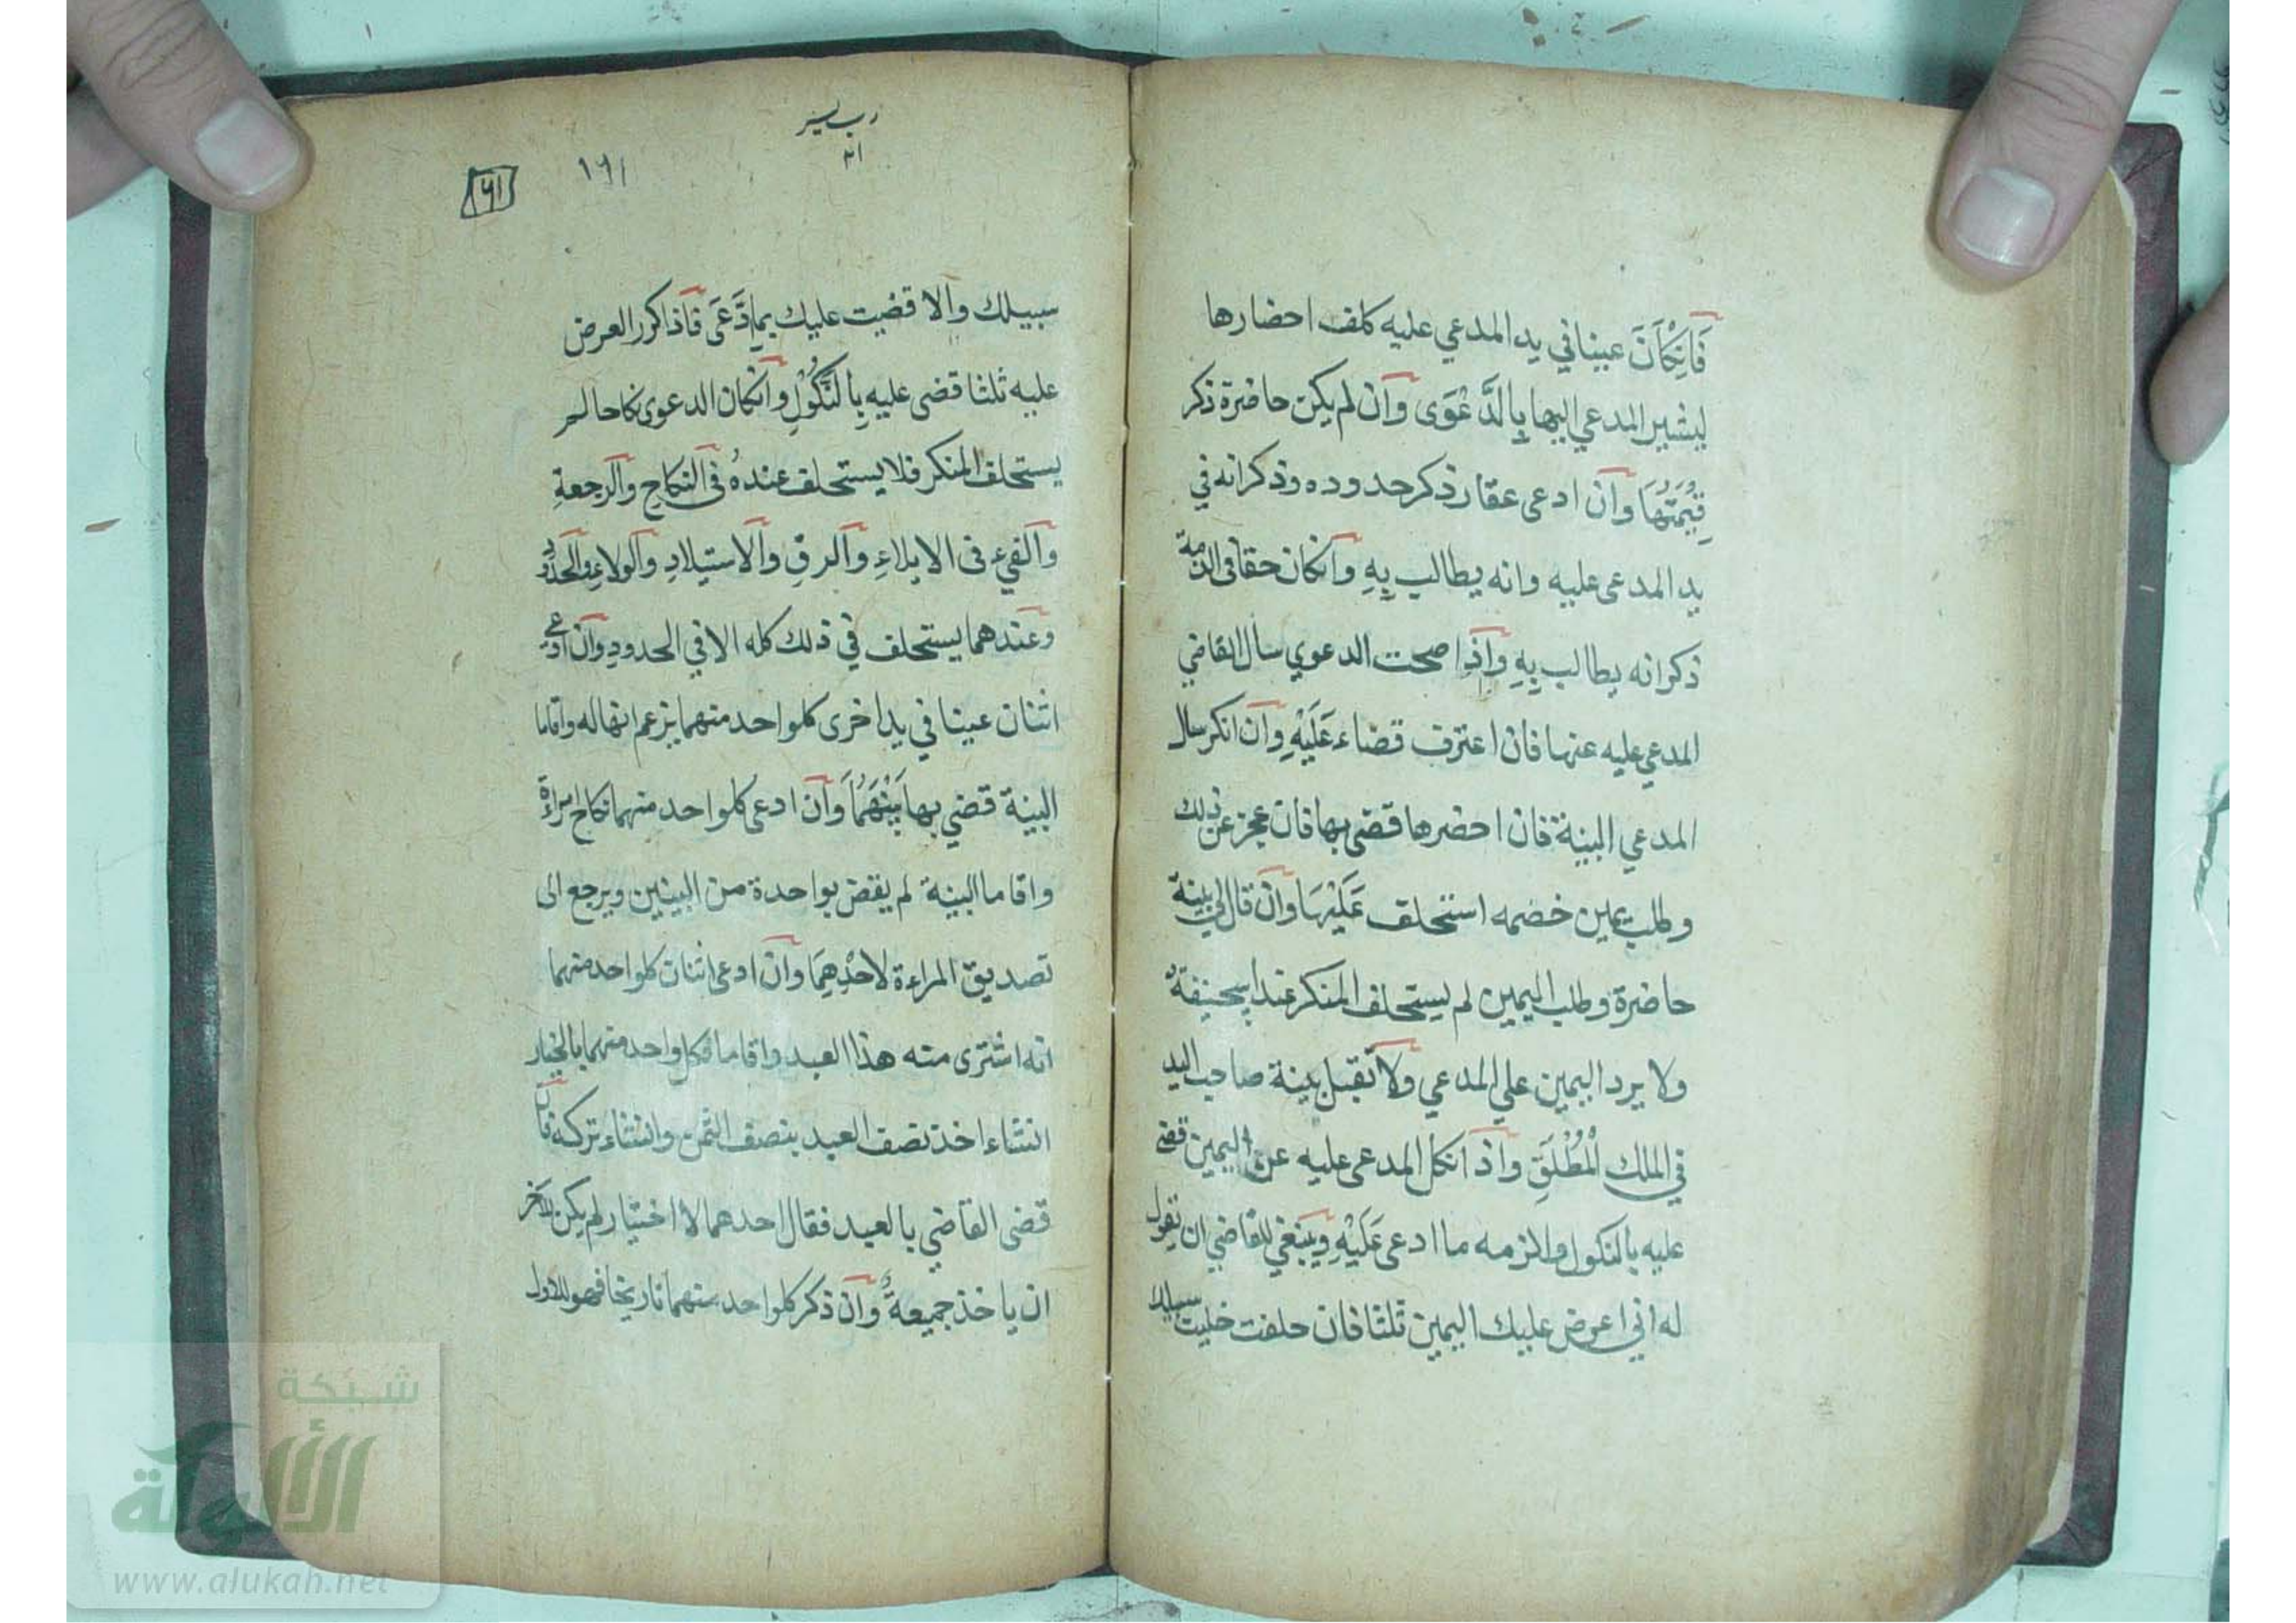 فَانِكْاَنَ عينا في يد المدعي عليه كلف احضارها
ليشير المدعي اليها بِالدَّعْوَى وان لم يكن حاضرة ذكر
قِيْمَتُهَا وان ادعى عقار ذكر حدوده وذكر انه في
يد المدعى عليه وانه يطالب بِهِ وانكان حقا فى الذمة
ذكر انه يطالب بِهِ واذا صحت الدعوي سال القاضي
المدعي عليه عنها فان اعترف قضاء عَلَيْهِ وان انكر سال
المدعي البينة فان احضرها قضى بها فان عجز عن ذلك
وطلب يمين خصمه استحلف عَلَيْهَا وان قال لي بينة
حاضرة وطلب اليمين لم يستحلف المنكر عند ابيحنيفة
ولا يرد اليمين علي المدعي ولا تقبل بينة صاحب اليد
في الملك الْمُطْلَقِ واذا نكل المدعى عليه عن اليمين قضى
عليه بالنكول والزمه ما ادعى عَلَيْهِ وينبغي للقاضي ان يقول
له اني اعرض عليك اليمين ثلثا فان حلفت خليت سبيلك
رب يسر
١٦١
٦١
سبيلك والا قضيت عليك بما اِدَّعَى فاذا كرر العرض
عليه ثلثا قضى عليه بِالنُّكُوْلِ وانكان الدعوى نكاحا لم
يستحلف المنكر فلا يستحلف عندهُ فى النكاحِ والرجعةِ
والفيء فى الايلاءِ والرقِ والاستيلادِ والولاءِ والحدودِ
وعندهما يستحلف في ذلك كله الا في الحدودِ وان ادعى
اثنان عينا في يد اخرى كلواحد منهما يزعم انها له واقاما
البينة قضي بها بَيْنَهُمَا وان ادعى كلواحد منهما نكاح امراءة
واقاما البينة لم يقض بواحدة من البينين ويرجع الى
تصديق المراءة لاحْدِهِمَا وان ادعى اثنان كلواحد منهما
انه اشترى منه هذا العبد واقاما فكل واحد منهما بالخيار
انشاء اخذ نصف العبد بنصف الثمن وانشاء تركه فان
قضى القاضي بالعبد فقال احدهما لا اختيار لم يكن للاخر
ان ياخذ جميعهُ وان ذكر كلواحد منهما تاريخا فهو للاول
شبكة
الألوكة
www.alukah.net